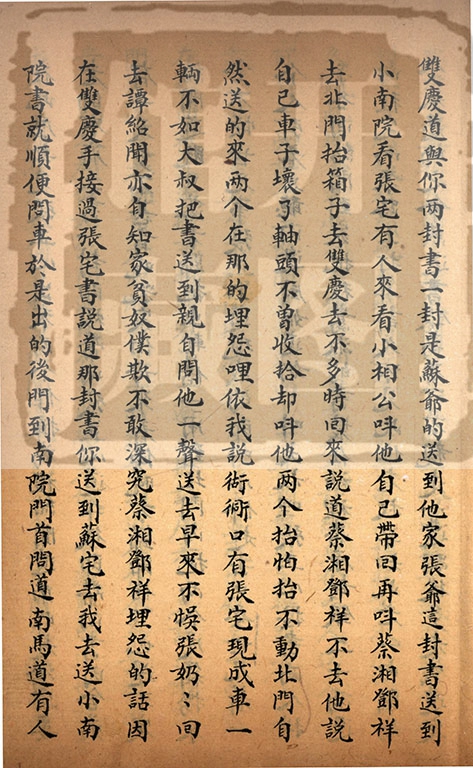 雙慶道與你两封書一封是蘇爺的送到他家張爺這封書送到
小南院看張宅有人來看小相公呌他自己帶回再呌蔡湘鄧祥
去北門抬箱子去雙慶去不多時回來說道蔡湘鄧祥不去他說
自己車子壞了軸頭不曾收拾却呌他两个抬怕抬不動北門自
然送的來两个在那的埋怨哩依我說衚衕口有張宅現成車一
輌不如大叔把書送到親自問他一聲送去早來不悞張奶〻回
去譚紹聞亦自知家貧奴僕欺不敢深究蔡湘鄧祥埋怨的話因
在雙慶手接過張宅書說道那封書你送到蘇宅去我去送小南
院書就順便問車於是出的後門到南院門首問道南馬道有人